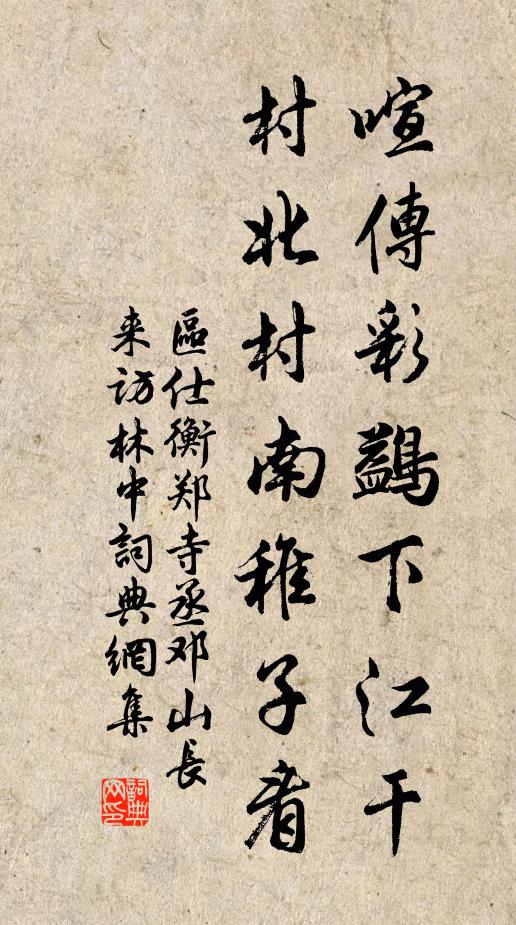 喧傳彩鷁下江干
村北村南稚子看
區仕衡郑寺丞邓山長
来访林中詞典網集
詞典
网印